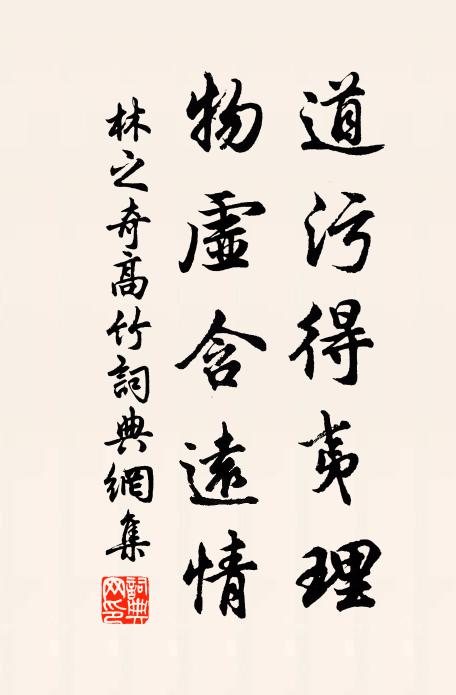 道污得夷理
物虛含遠情
林之奇高竹詞典網集
詞典網印